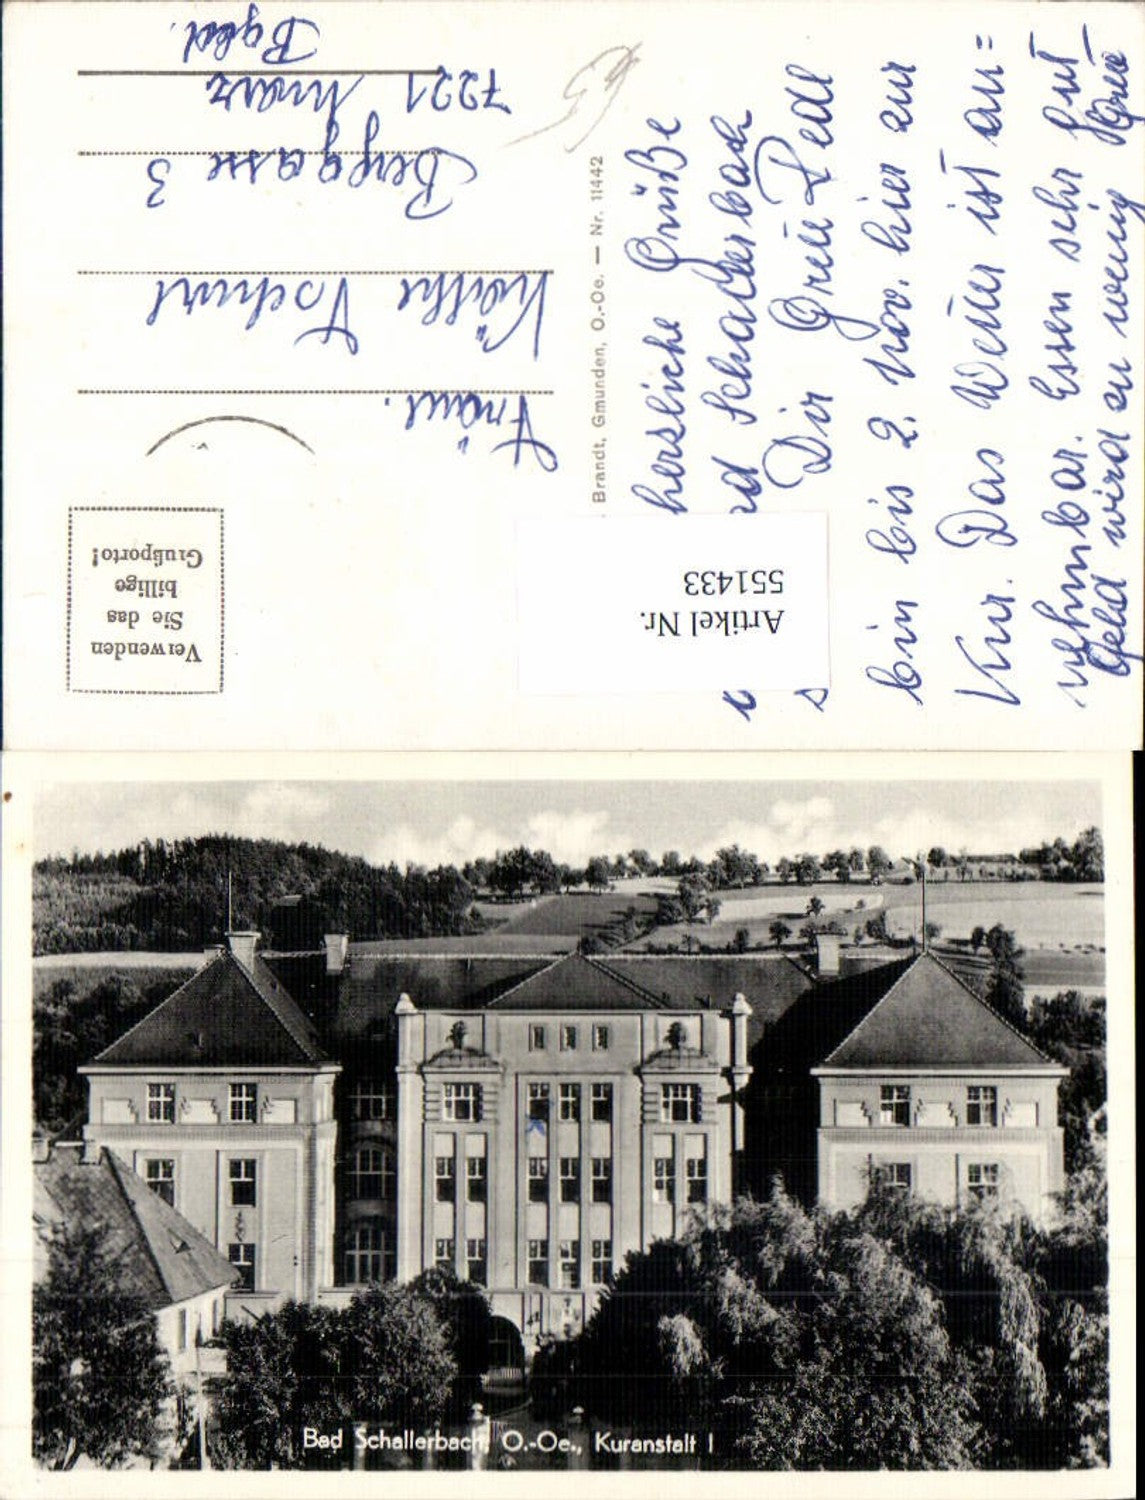 herzliche Grüße
Schallerbach
Dir
bin bis 2. Nov. hier zur
Kur. Das Wetter ist an=
nehmbar. Essen sehr gut
Geld wird zu wenig
Brandt, Gmunden, O.-Oe. — Nr. 11442
Artikel Nr.
551433
Verwenden
Sie das
billige
Grußporto!
Käthe
Berggasse 3
7221 Marz
Bgld.
Bad Schallerbach, O.-Oe., Kuranstalt I